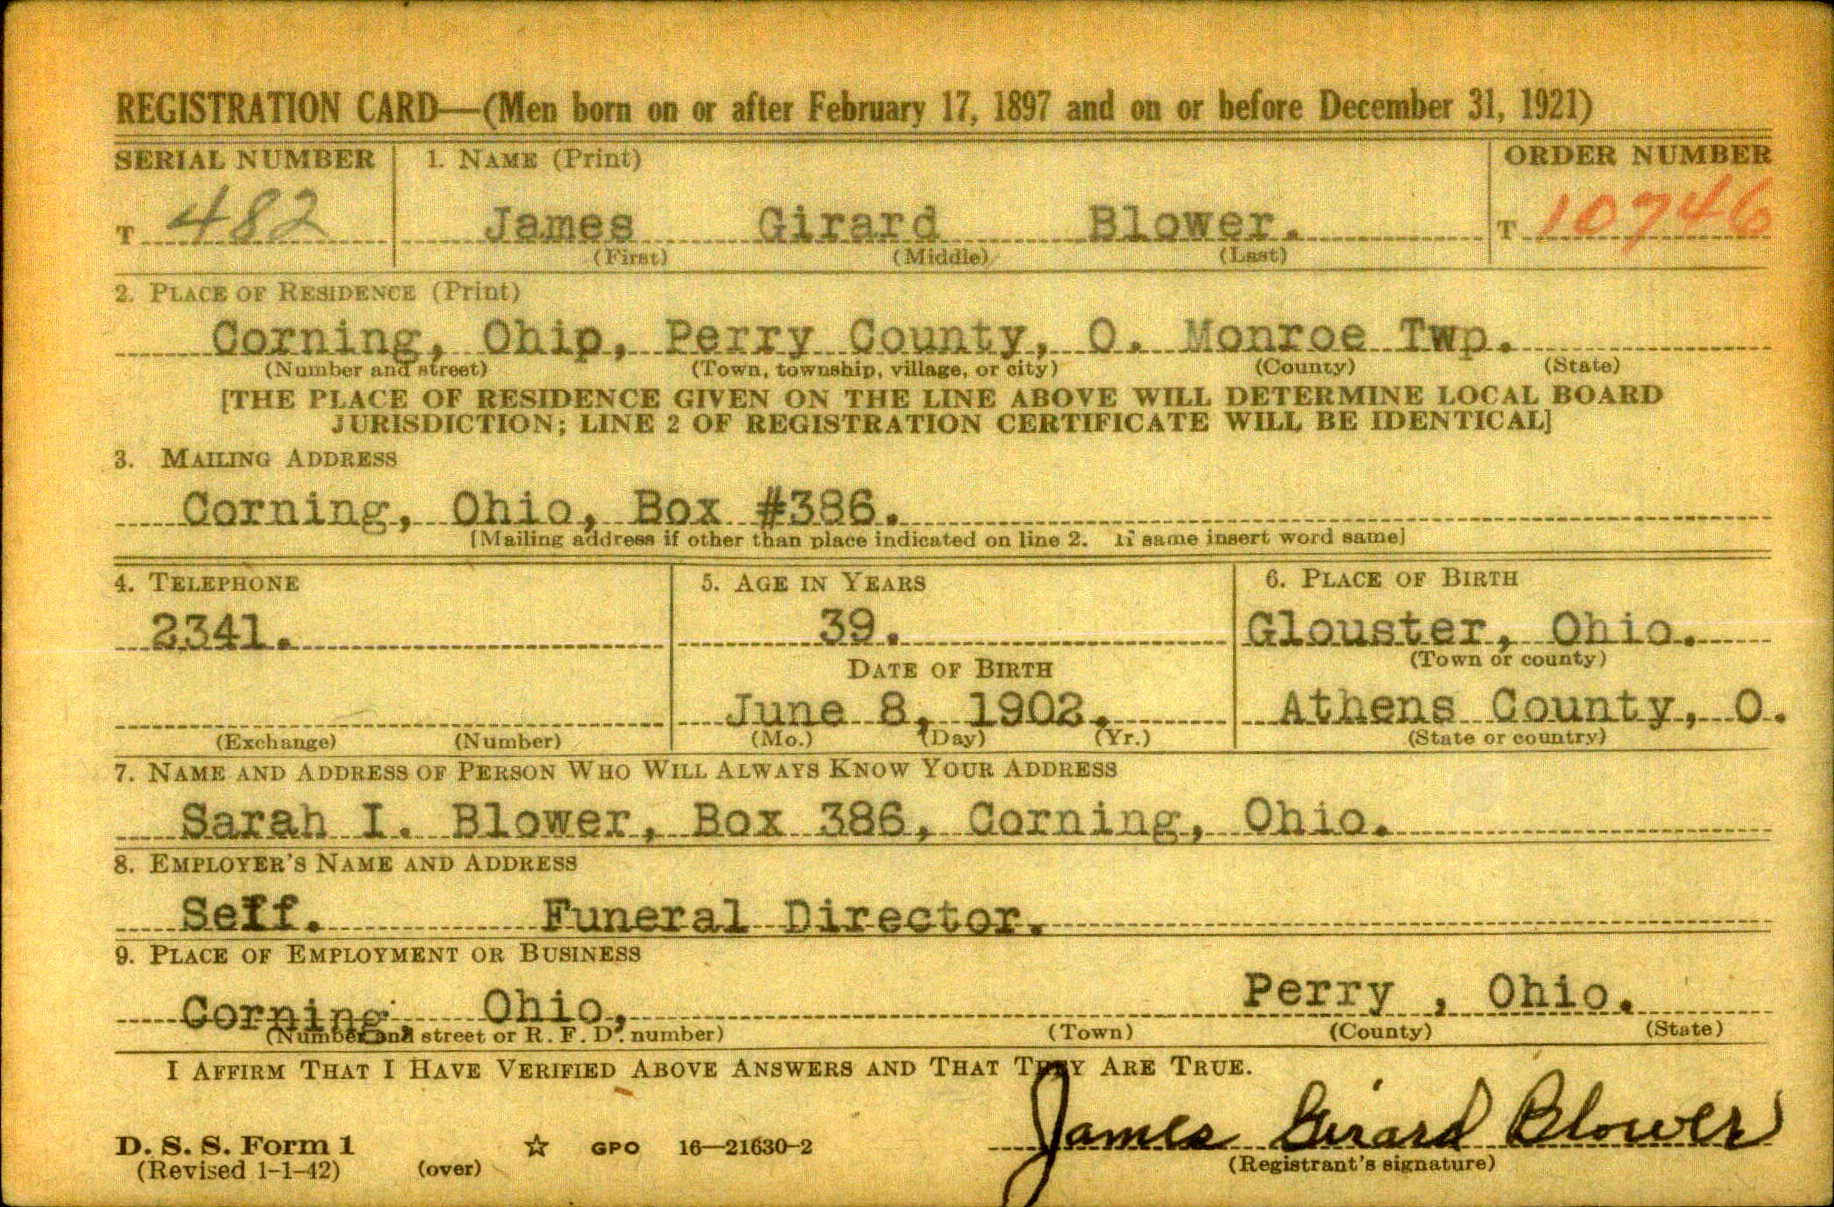 REGISTRATION CARD—(Men born on or after February 17, 1897 and on or before December 31, 1921)
SERIAL NUMBER 1. NAME (Print) ORDER NUMBER
T 482 James Girard Blower. T 10746
(First) (Middle) (Last)
2. PLACE OF RESIDENCE (Print)
Corning, Ohip, Perry County, O. Monroe Twp.
(Number and street) (Town, township, village, or city) (County) (State)
[THE PLACE OF RESIDENCE GIVEN ON THE LINE ABOVE WILL DETERMINE LOCAL BOARD
JURISDICTION; LINE 2 OF REGISTRATION CERTIFICATE WILL BE IDENTICAL]
3. MAILING ADDRESS
Corning, Ohio, Box #386.
[Mailing address if other than place indicated on line 2. If same insert word same]
4. TELEPHONE 5. AGE IN YEARS 6. PLACE OF BIRTH
2341. 39. Glouster, Ohio.
DATE OF BIRTH (Town or county)
June 8, 1902. Athens County, O.
(Exchange) (Number) (Mo.) (Day) (Yr.) (State or country)
7. NAME AND ADDRESS OF PERSON WHO WILL ALWAYS KNOW YOUR ADDRESS
Sarah I. Blower, Box 386, Corning, Ohio.
8. EMPLOYER'S NAME AND ADDRESS
Self. Funeral Director.
9. PLACE OF EMPLOYMENT OR BUSINESS
Corning Ohio, Perry , Ohio.
(Number and street or R. F. D. number) (Town) (County) (State)
I AFFIRM THAT I HAVE VERIFIED ABOVE ANSWERS AND THAT THEY ARE TRUE.
James Girard Blower
D. S. S. Form 1 ☆ GPO 16—21630-2
(Revised 1-1-42) (over) (Registrant's signature)